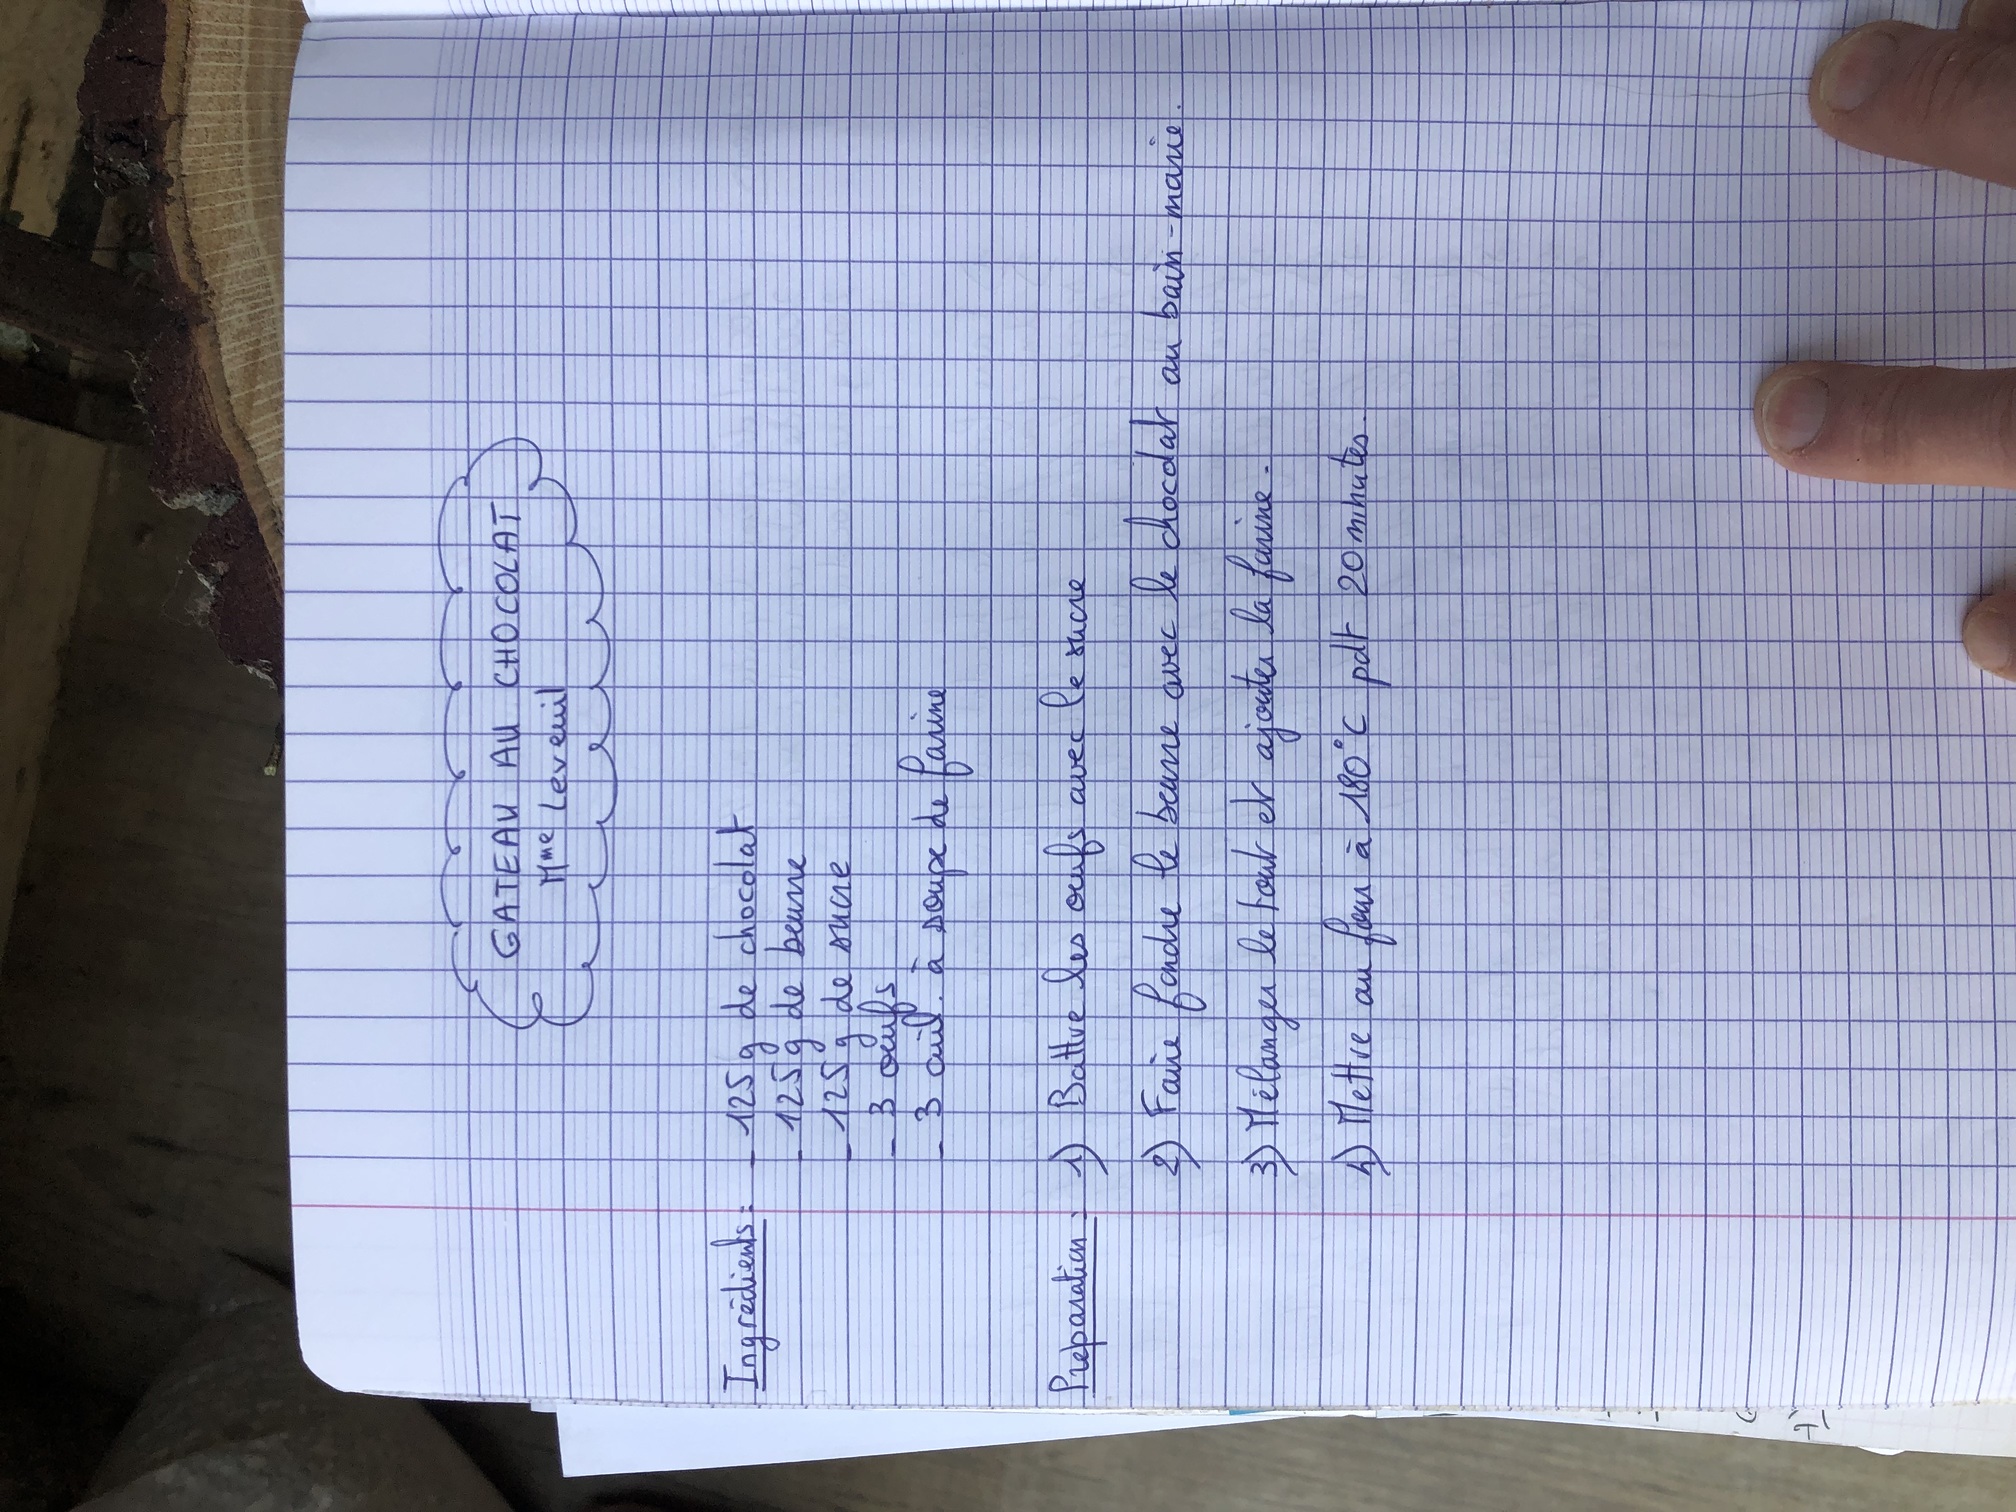 GATEAU AU CHOCOLAT
Mme Leveuil
Ingrédients: - 125 g de chocolat
- 125 g de beurre
- 125 g de sucre
- 3 oeufs
- 3 cuil. à soupe de farine
Préparation: 1) Battre les oeufs avec le sucre
2) Faire fondre le beurre avec le chocolat au bain-marie.
3) Mélanger le tout et ajouter la farine.
4) Mettre au four à 180°C pdt 20 minutes.